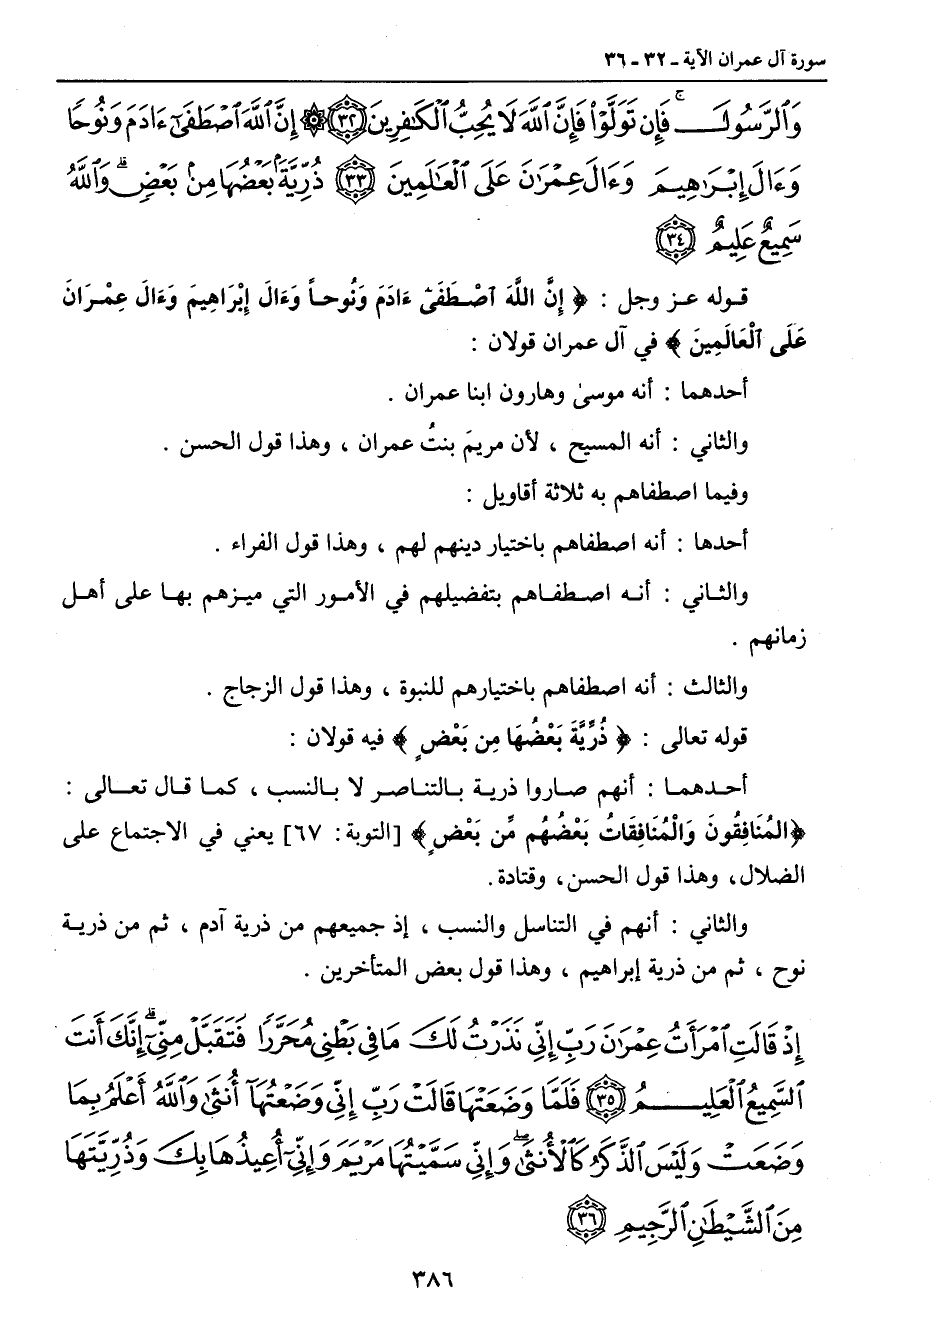 سورة آل عمران الآية ـ ٣٢ ـ ٣٦
وَٱلرَّسُولَ ۖ فَإِن تَوَلَّوْا۟ فَإِنَّ ٱللَّهَ لَا يُحِبُّ ٱلْكَٰفِرِينَ ٣٢ ۞ إِنَّ ٱللَّهَ ٱصْطَفَىٰٓ ءَادَمَ وَنُوحًا
وَءَالَ إِبْرَٰهِيمَ وَءَالَ عِمْرَٰنَ عَلَى ٱلْعَٰلَمِينَ ٣٣ ذُرِّيَّةًۢ بَعْضُهَا مِنۢ بَعْضٍ ۗ وَٱللَّهُ
سَمِيعٌ عَلِيمٌ ٣٤
قوله عز وجل : ﴿ إِنَّ اللَّهَ اصْطَفَىٰٓ ءَادَمَ وَنُوحاً وَءَالَ إِبْرَاهِيمَ وَءَالَ عِمْرَانَ
عَلَى الْعَالَمِينَ ﴾ في آل عمران قولان :
أحدهما : أنه موسىٰ وهارون ابنا عمران .
والثاني : أنه المسيح ، لأن مريمَ بنتُ عمران ، وهذا قول الحسن .
وفيما اصطفاهم به ثلاثة أقاويل :
أحدها : أنه اصطفاهم باختيار دينهم لهم ، وهذا قول الفراء .
والثاني : أنه اصطفاهم بتفضيلهم في الأمور التي ميزهم بها على أهل
زمانهم .
والثالث : أنه اصطفاهم باختيارهم للنبوة ، وهذا قول الزجاج .
قوله تعالى : ﴿ ذُرِّيَّةَ بَعْضُهَا مِن بَعْضٍ ﴾ فيه قولان :
أحدهما : أنهم صاروا ذرية بالتناصر لا بالنسب ، كما قال تعالى :
﴿المُنَافِقُونَ وَالْمُنَافِقَاتُ بَعْضُهُم مِّن بَعْضٍ﴾ [التوبة: ٦٧] يعني في الاجتماع على
الضلال، وهذا قول الحسن، وقتادة.
والثاني : أنهم في التناسل والنسب ، إذ جميعهم من ذرية آدم ، ثم من ذرية
نوح ، ثم من ذرية إبراهيم ، وهذا قول بعض المتأخرين .
إِذْ قَالَتِ ٱمْرَأَتُ عِمْرَٰنَ رَبِّ إِنِّى نَذَرْتُ لَكَ مَا فِى بَطْنِى مُحَرَّرًا فَتَقَبَّلْ مِنِّىٓ ۖ إِنَّكَ أَنتَ
ٱلسَّمِيعُ ٱلْعَلِيمُ ٣٥ فَلَمَّا وَضَعَتْهَا قَالَتْ رَبِّ إِنِّى وَضَعْتُهَآ أُنثَىٰ وَٱللَّهُ أَعْلَمُ بِمَا
وَضَعَتْ وَلَيْسَ ٱلذَّكَرُ كَٱلْأُنثَىٰ ۖ وَإِنِّى سَمَّيْتُهَا مَرْيَمَ وَإِنِّىٓ أُعِيذُهَا بِكَ وَذُرِّيَّتَهَا
مِنَ ٱلشَّيْطَٰنِ ٱلرَّجِيمِ ٣٦
٣٨٦